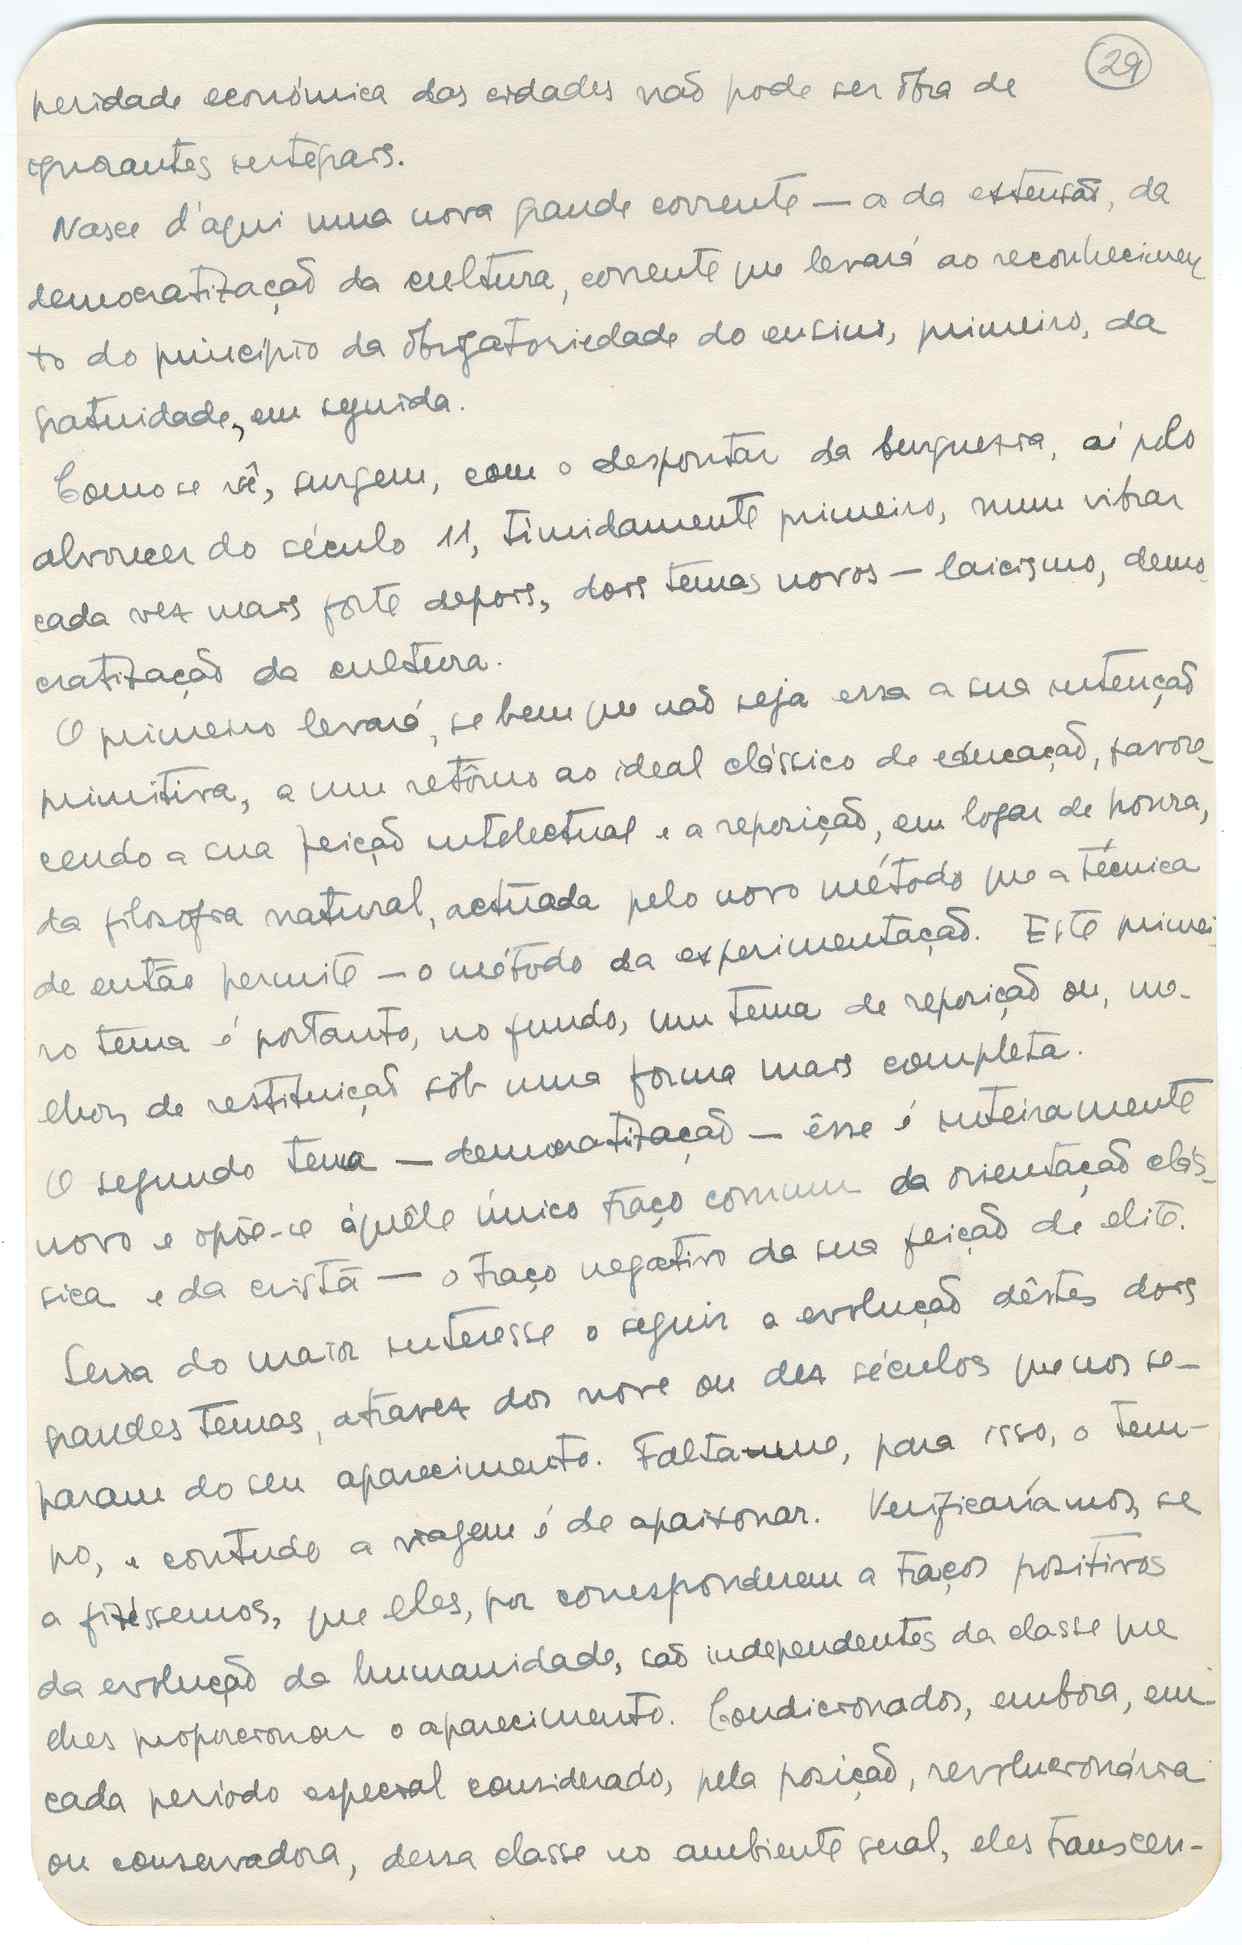 29
peridade económica das cidades não pode ser obra de
ignorantes integrais.
Nasce d'aqui uma nova grande corrente — a da extensão, da
democratização da cultura, corrente que levará ao reconhecimen
to do princípio da obrigatoriedade do ensino, primeiro, da
gratuidade, em seguida.
Como se vê, surgem, com o despontar da burguesia, aí pelo
alvorecer do século 11, timidamente primeiro, num vibrar
cada vez mais forte depois, dois temas novos — laicismo, demo
cratização da cultura.
O primeiro levará, se bem que não seja essa a sua intenção
primitiva, a um retôrno ao ideal clássico de educação, favore_
cendo a sua feição intelectual e a reposição, em logar de honra,
da filosofia natural, actuada pelo novo método que a técnica
de então permite — o método da experimentação. Este primei
ro tema é portanto, no fundo, um tema de reposição ou, me-
lhor, de restituição sôb uma forma mais completa.
O segundo tema — democratização — êsse é inteiramente
novo e opõe-se àquêle único traço comum da orientação clás_
sica e da cristã — o traço negativo da sua feição de elite.
Seria do maior interesse o seguir a evolução dêstes dois
grandes temas, atravez dos nove ou dez séculos que nos se-
param do seu aparecimento. Falta-me, para isso, o tem-
po, e contudo a viagem é de apaixonar. Verificaríamos, se
a fizéssemos, que eles, por corresponderem a traços positivos
da evolução da humanidade, são independentes da classe que
lhes proporcionou o aparecimento. Condicionados, embora, em
cada período especial considerado, pela posição, revolucionária
ou conservadora, dessa classe no ambiente geral, eles transcen-